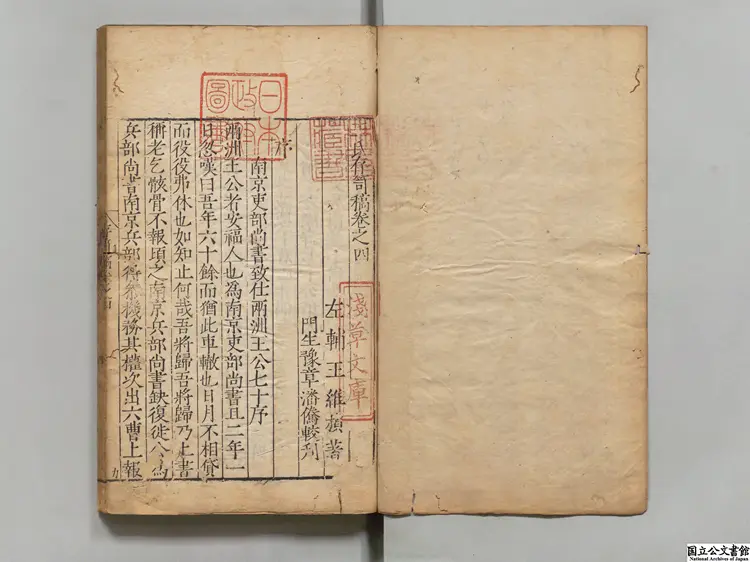 氏存笥稿卷之四
左輔王維楨著
門生豫章潘僑較刋
序
南京吏部尚書致仕兩洲王公七十序
兩洲王公者安福人也為南京吏部尚書且二年一
日忽嘆曰吾年六十餘而猶此車轍也日月不相貸
而役役弗休也如知止何哉吾將歸吾將歸乃上書
稱老乞骸骨不報頃之南京兵部尚書缺復徙公為
兵部尚書南京兵部得參機務其權次出六曹上報
日本
政府
圖書
淺草文庫
九
国立公文書館
National Archives of Japan